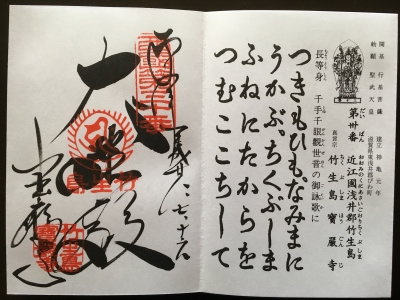 開基 行基菩薩 建立 神亀元年
勅願 聖武天皇 滋賀県東浅井郡びわ町
第卅番 近江國浅井郡竹生島
真言宗 竹生島 寶厳寺
長等身 千手千眼観世音の御詠歌に
つきもひも、なみまに
うかぶ、ちくぶしま
ふねにたからを
つむここちして
大悲殿